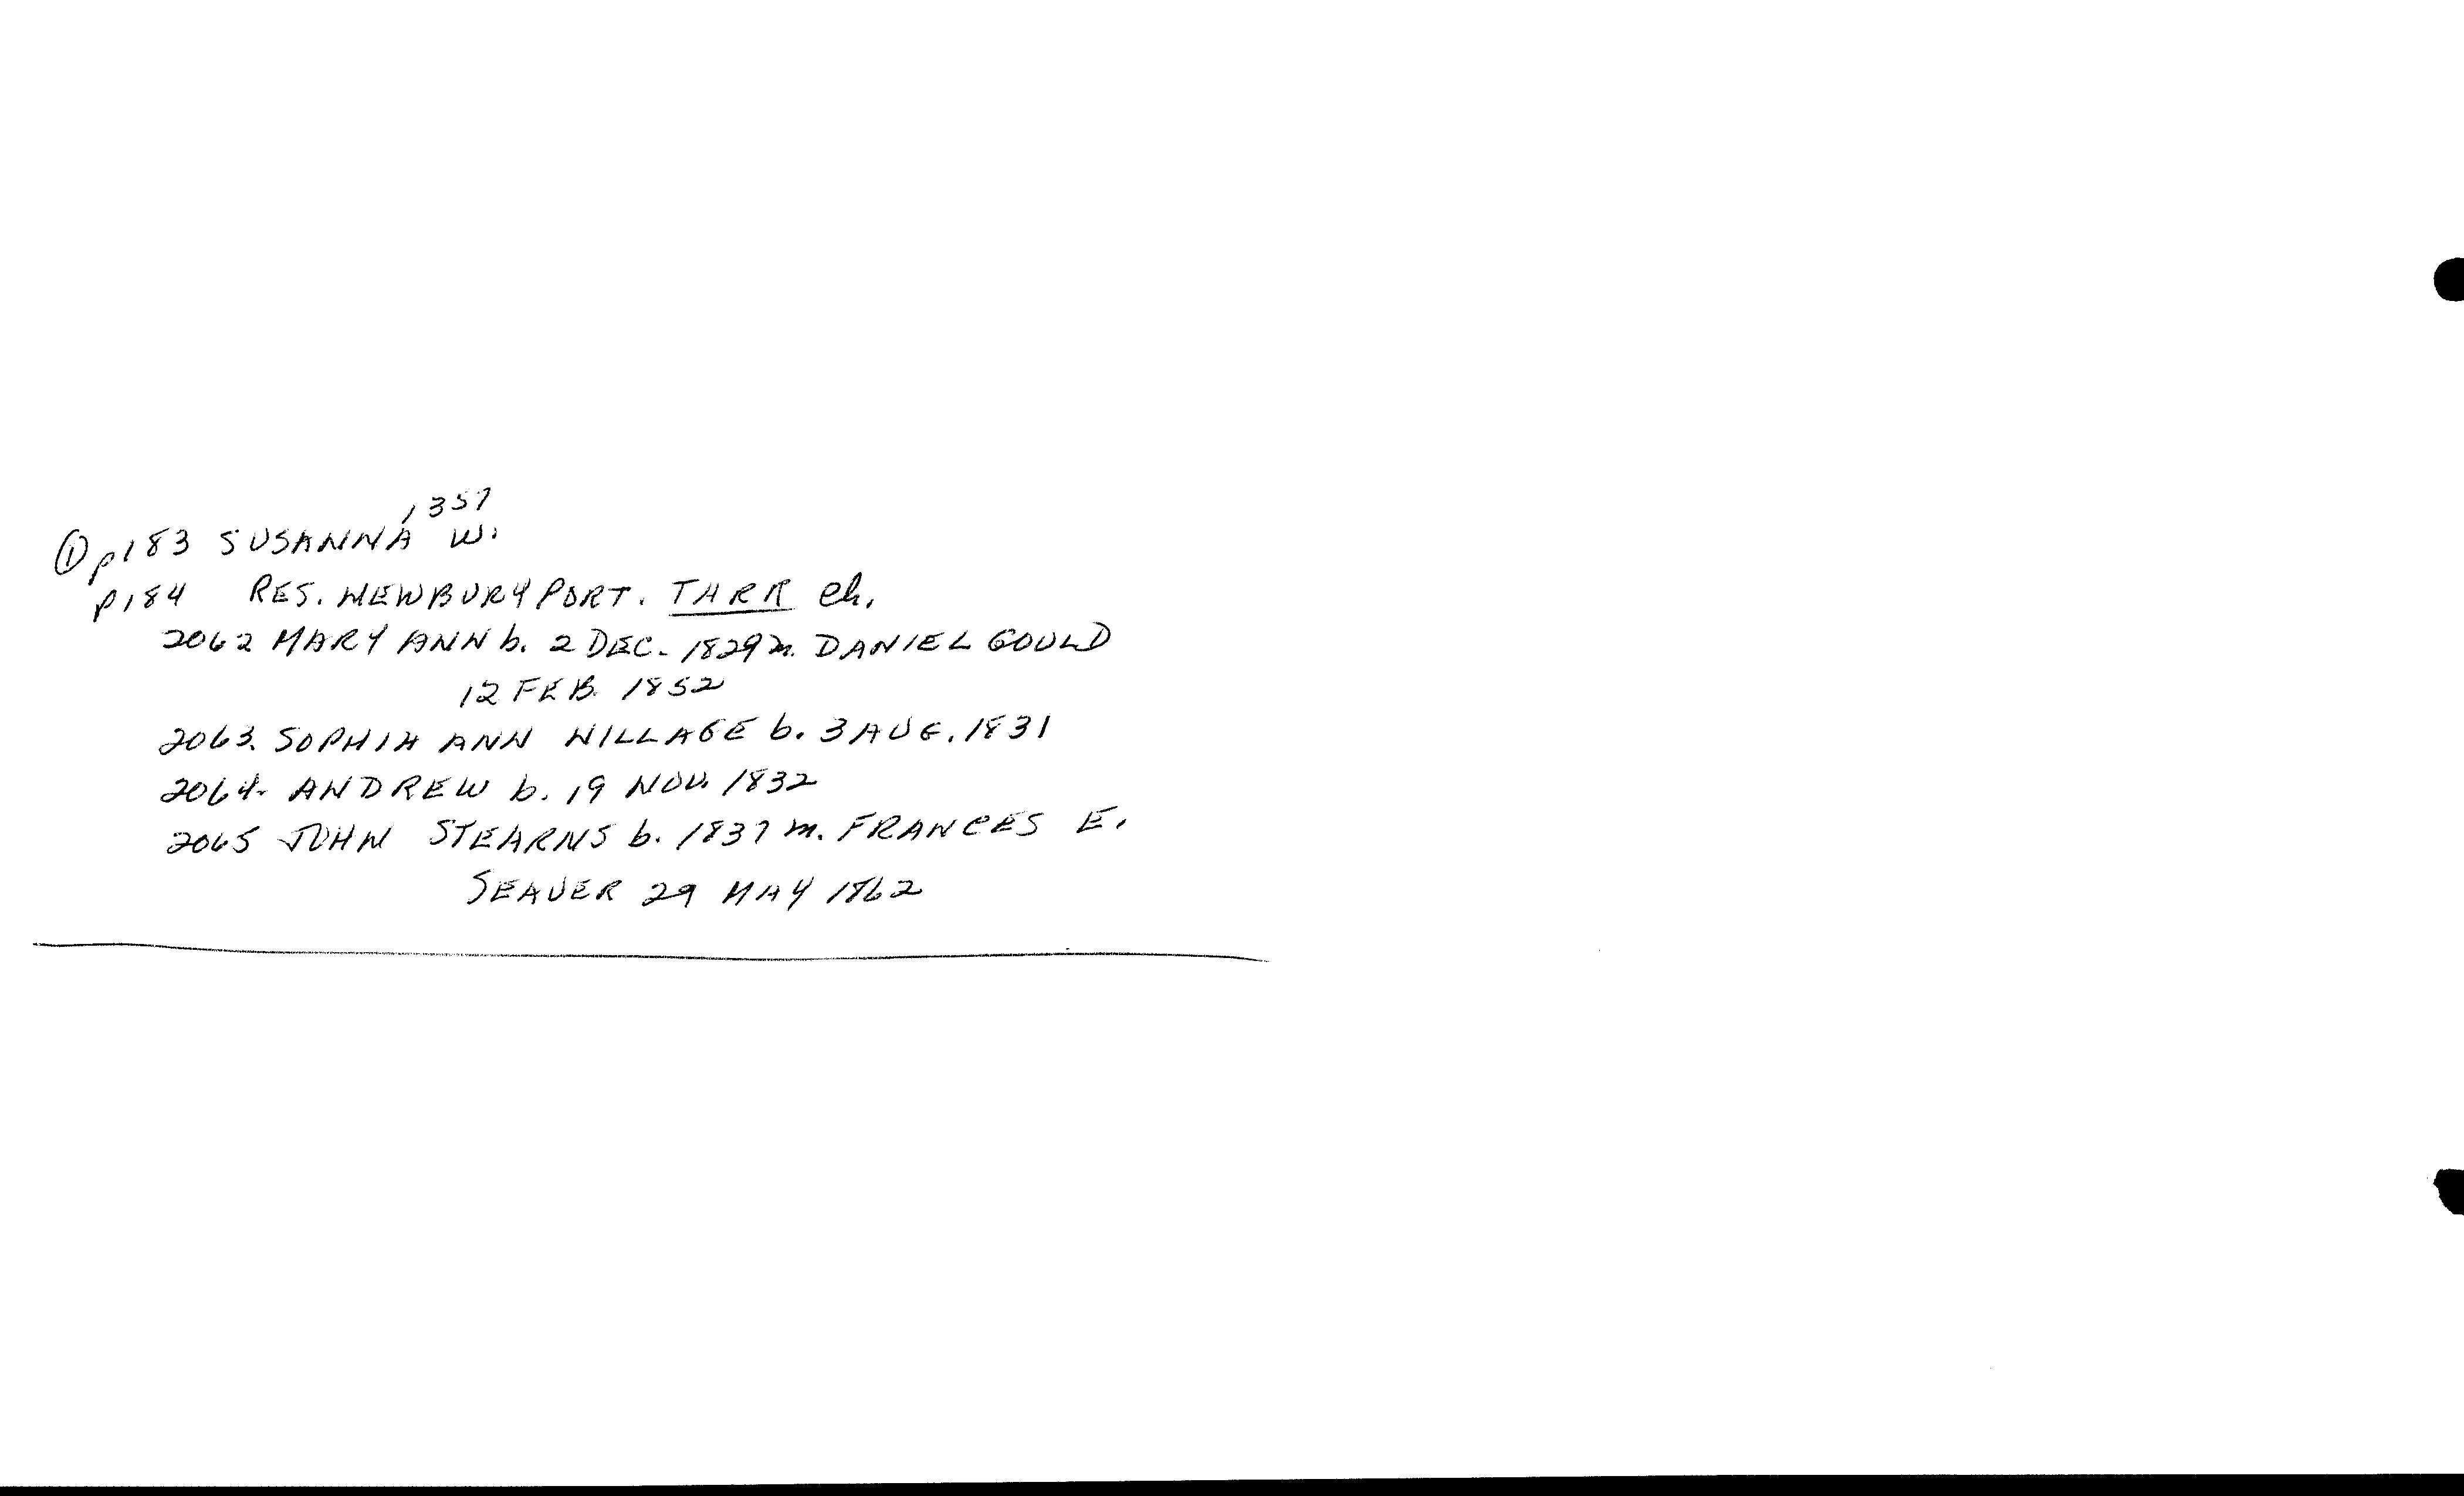 1357
① p183 SUSANNA W.
p184 RES. NEWBURYPORT. TARR ch.
2062 MARY ANN b. 2 DEC. 1829 m. DANIEL GOULD
12 FEB. 1852
2063. SOPHIA ANN WILLAGE b. 3 AUG. 1831
2064. ANDREW b. 19 NOV. 1832
2065 JOHN STEARNS b. 1837 m. FRANCES E.
SEAVER 29 MAY 1862